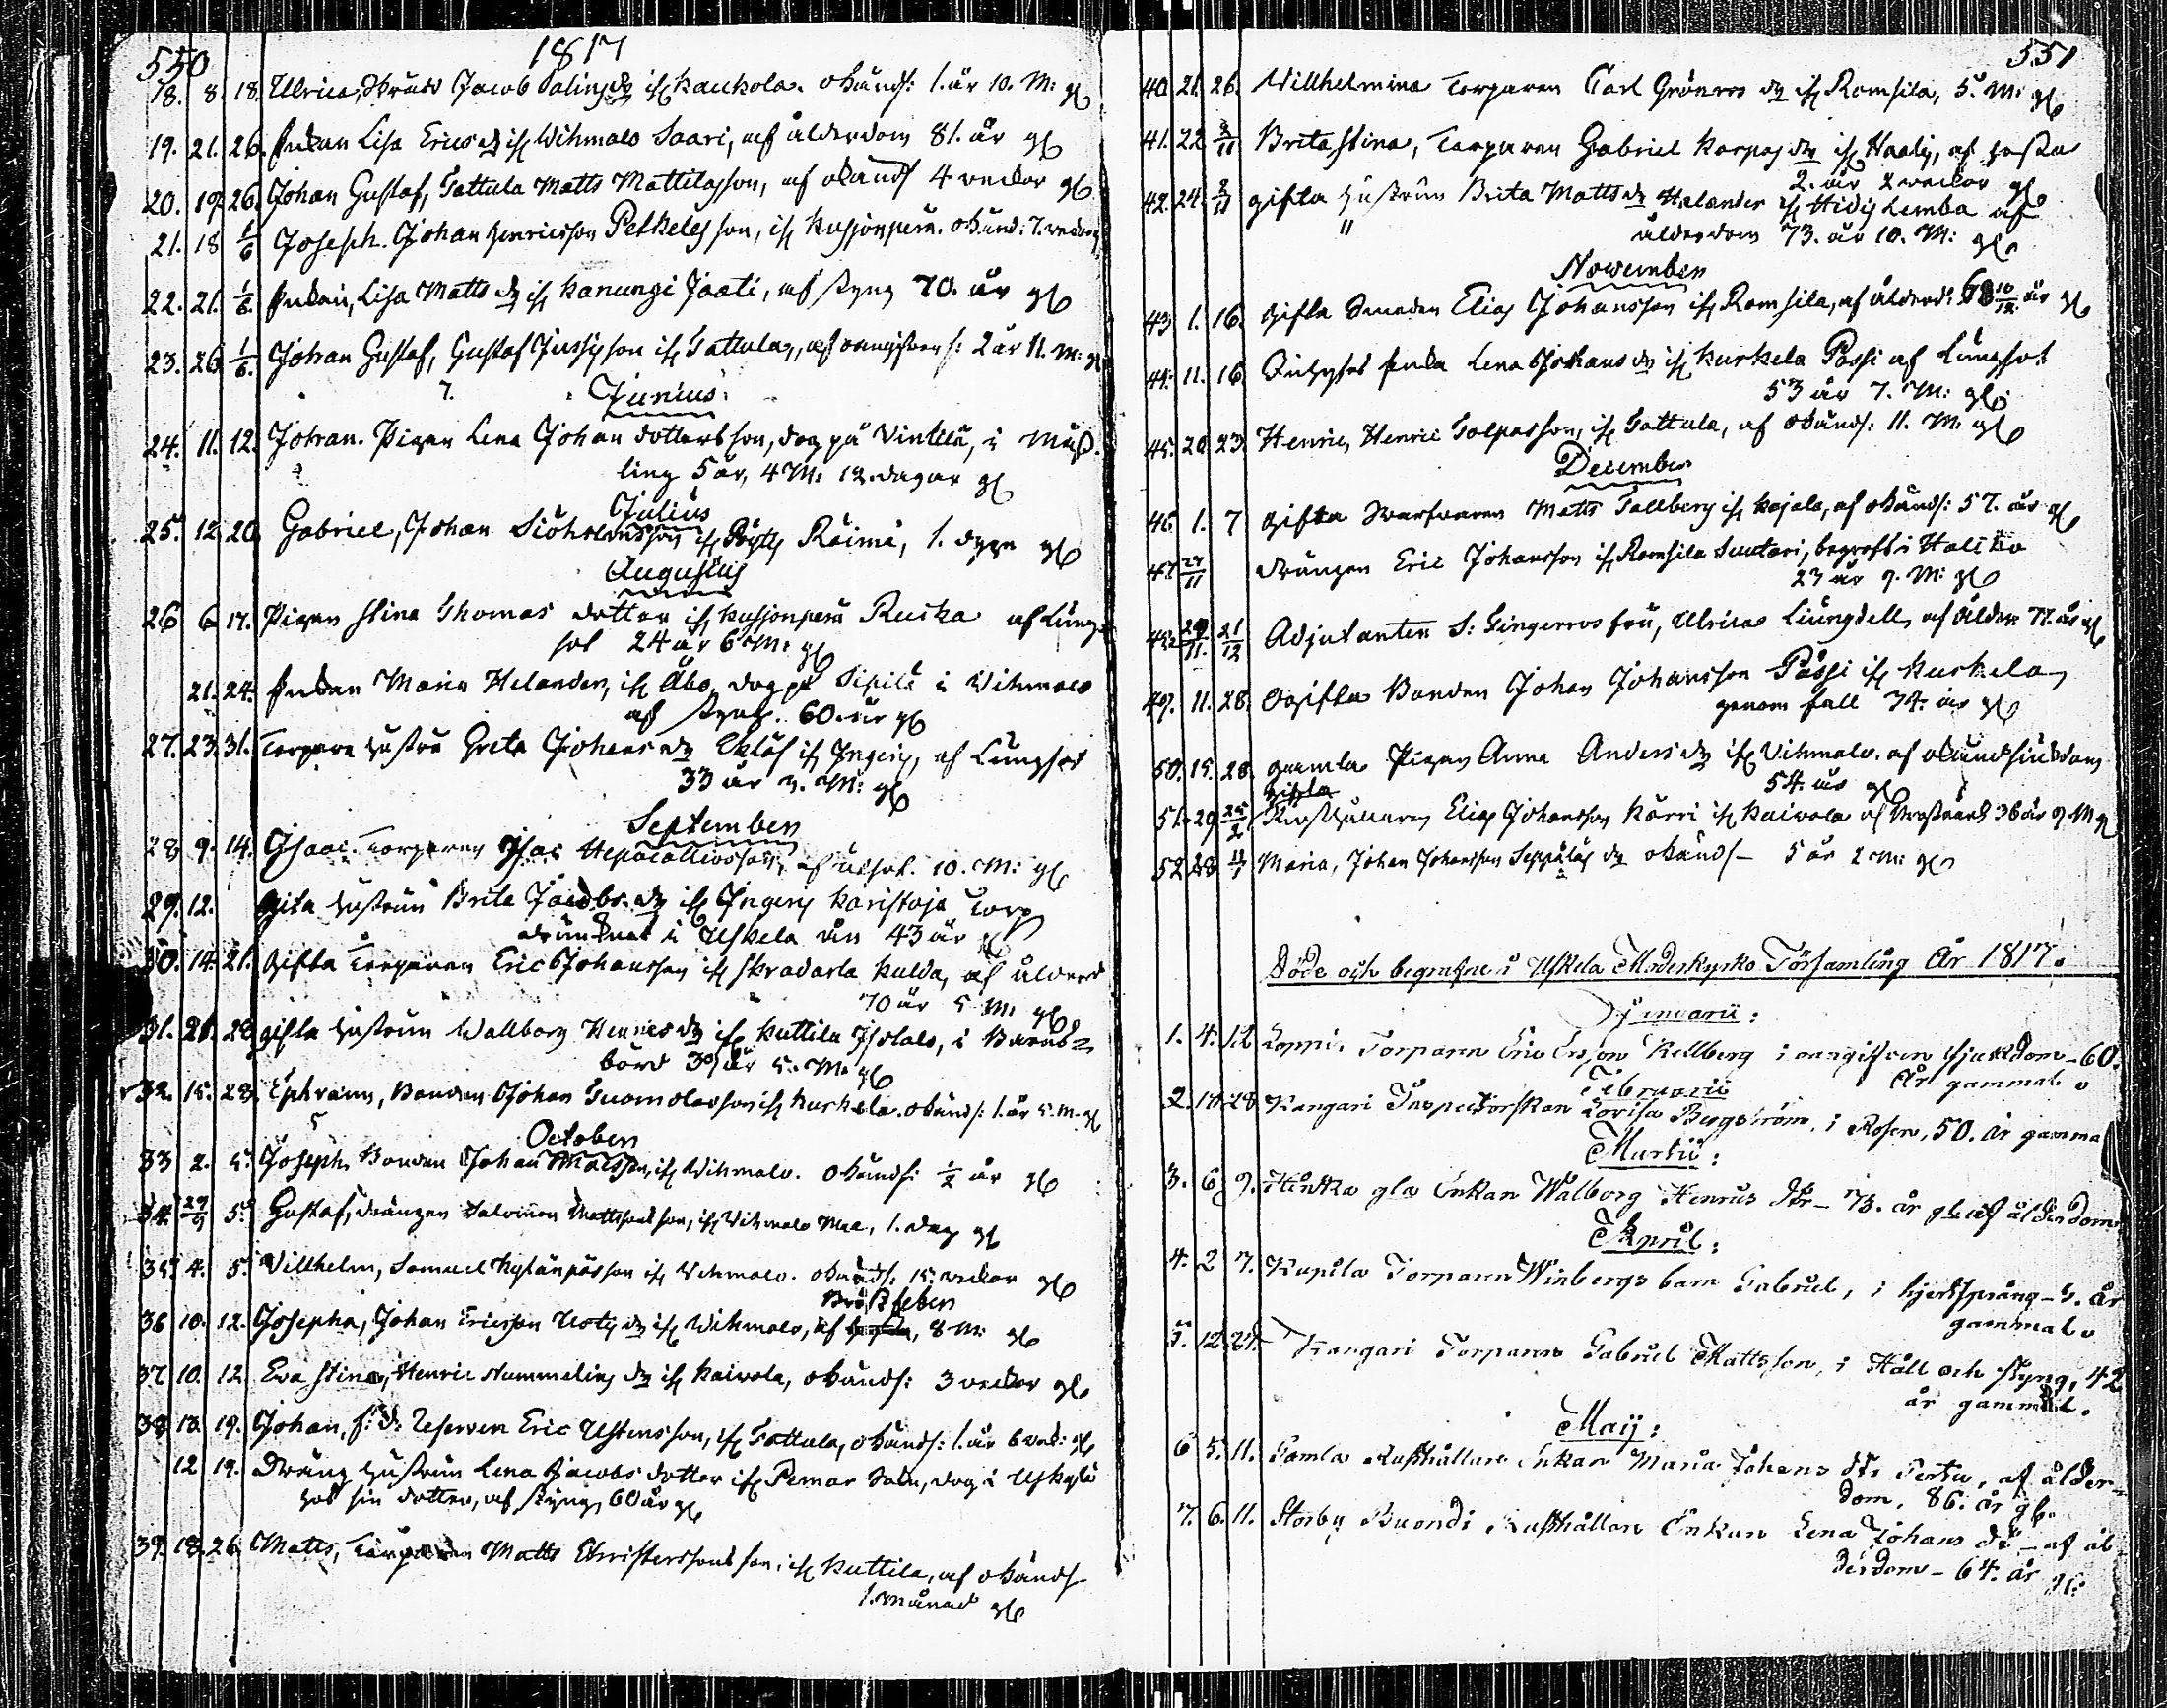 550 1817
18. 8. 18. Ulrica, Jacob Salins dr if Kaukola. okänds: 1. år 10. M: gl
19. 21. 26. Enkan Lisa Erics dr if Wihmalo Saari, af ålderdom 81. år gl
20. 19. 26. Johan Gustaf, Tattula Matts Mattilas son, af okänds 4 veckor gl
21. 18 1/6 Joseph. Johan Henricsson Petkeles son, if Kusjonperä. okänd: 7. veckor
22. 21. 1/6. Enkan, Lisa Matts dr if Kanungi Jaati, af styng 70. år gl
23. 26 1/6. Johan Gustaf, Gustaf Jussis son if Tattula, af oangifven s: 2 år 11. M: gl
7. Junius:
24. 11. 12. Johan. Pigan Lena Johan dotters son, dog på Vintilä, i Mäss-
ling 5 år, 4 M: 12. dagar gl
Julius
25. 12. 20. Gabriel, Johan son if Pöytis Räimä, 1. dygn gl
Augustus
26 6 17. Pigan Stina Thomas dotter if Kusjonperä Rucka af Lung-
sot 24 år 6 M: gl
21. 24. Enkan Maria Helander, if Åbo, dog på Sipilä i Wihmalo
af styng. 60. år gl
27. 23. 31. Torpare hustru Greta Johans dr Eklöf if Ingeris, af Lungsot
33 år 3. M: gl
September
28 9. 14. Isaac. Torparen Isac son, af utsot. 10. M: gl
29. 12. Gifta hustrun Brita Jacobs dr if Ingeris Karistoja Torp
drunknat i Uskela ån 43 år gl
30. 14. 21. Gifta Torparen Eric Johansson if Skradarla Kulda, af ålderd
70 år 5 M: gl
31. 21. 28 gifta hustrun Wallborg Henrics dr if Kuttila Isotalo, i Barns-
börd 39 år 5. M. gl
32. 15. 28. Ephraim, Bonden Johan Tuomolas son if Kurkela. okänds: 1. år 5. M. gl
October
33 2. 5. Joseph, Bonden Johan Matsson, if Wihmalo. okänds: 1/2 år gl
34. 29/9 5. Gustaf, drängen Salomon Mattssons son, if Wihmalo 1. dag gl
35. 4. 5. Villhelm, Samuel Kylänpääs son if Wihmalo. okänds, 15. veckor gl
Bröstfeber
36 10. 12. Josepha, Johan Ericsson Uotis dr if Wihmalo, af 8 M: gl
37. 10. 12. Eva Stina, Henric Nummelins dr if Kaivola, okänds: 3 veckor gl
38 13. 19. Johan, f: d: Reserven Eric Ustens son, if Tattula, okänds: 1. år 6 veck: gl
12 19. Dräng hustrun Lena Jacobs dotter if Pemar Socn, dog i Uskylä
hos sin dotter, af styng, 60 år gl
39. 18. 26. Matts, Torparen Matts Christerssons son, if Kuttila, af okänds
1. månad gl
551
40. 21. 26. Villhelmina Torparen Carl Grönros dr if Romsila, 5. M: gl
41. 22. 2/11 Brita Stina, Torparen Gabriel Korpas dr if Haalis, af hosta
2. år 2 veckor gl
42. 24. 2/11 gifta hustrun Brita Matts dr Helander if Hidis Lemba af
" ålderdom 73. år 10. M: gl
November
43 1. 16. Gifta Smeden Elias Johansson if Romsila, af ålderd: 68 10/12 år gl
44. 11. 16. Enka Lena Johans dr if Kurkela Passi af Lungsot
53 år 7. M: gl
45. 20. 23. Henric, Henric Tolpas son, if Tattula, af okänds: 11. M: gl
December
46 1. 7 Gifta Swarfvaren Matts Tallberg if Kajala, af okänds: 57. år gl
47 27/11 drängen Eric Johansson if Romsila Suutari, begrafs i Haliko
23 år 9. M: gl
48. 29/11. 21/12 Adjutanten S: Gingerros fru, Ulrica Liungdell, af ålder 77. år gl
49. 11. 28. Ogifta Bonden Johan Johansson Passi if Kurkela,
genom fall 34. år gl
50. 15. 28. gamla Pigan Anna Anders dr if Vihmalo. af okänd siukdom
54. år gl
Gifta
51. 29 Rusthållaren Elias Johansson Kärri if Kaivola af 36 år 9 M gl
52 28 Maria, Johan Johansson Seppäläs dr okänds- 5 år 2 M: gl
Döde och begrafne i Uskela Moderkyrko Församling År 1817.
Januarii:
1. 4. 12. Loppis Torparen Eric Ersson Kellberg i oangifven sjukdom - 60.
År gammal.
Februarii
2. 18. 28. Kangari Inspectorskan Lovisa Bergström, i Rosen, 50. år gamma
Martii:
3. 6. 9. Hintka gla Enkan Walborg Henrics dtr - 73. år gl. af ålderdom
April:
4. 2 7. Kupila Torparen Winbergs barn Gabriel, i hjertsprång - 3. år
gammal.
5. 12. 21. Kangari Torparen Gabriel Mattsson, i Håll och styng, 42
år gammal.
Maij:
6 5. 11. Gamla Rusthållare Enkan Maria Johans dtr Pertu, af ålder-
dom, 86. år gl.
7. 6. 11. Storby Buondi Rusthållare Enkan Lena Johans dr - af ål-
derdom - 64. år gl: